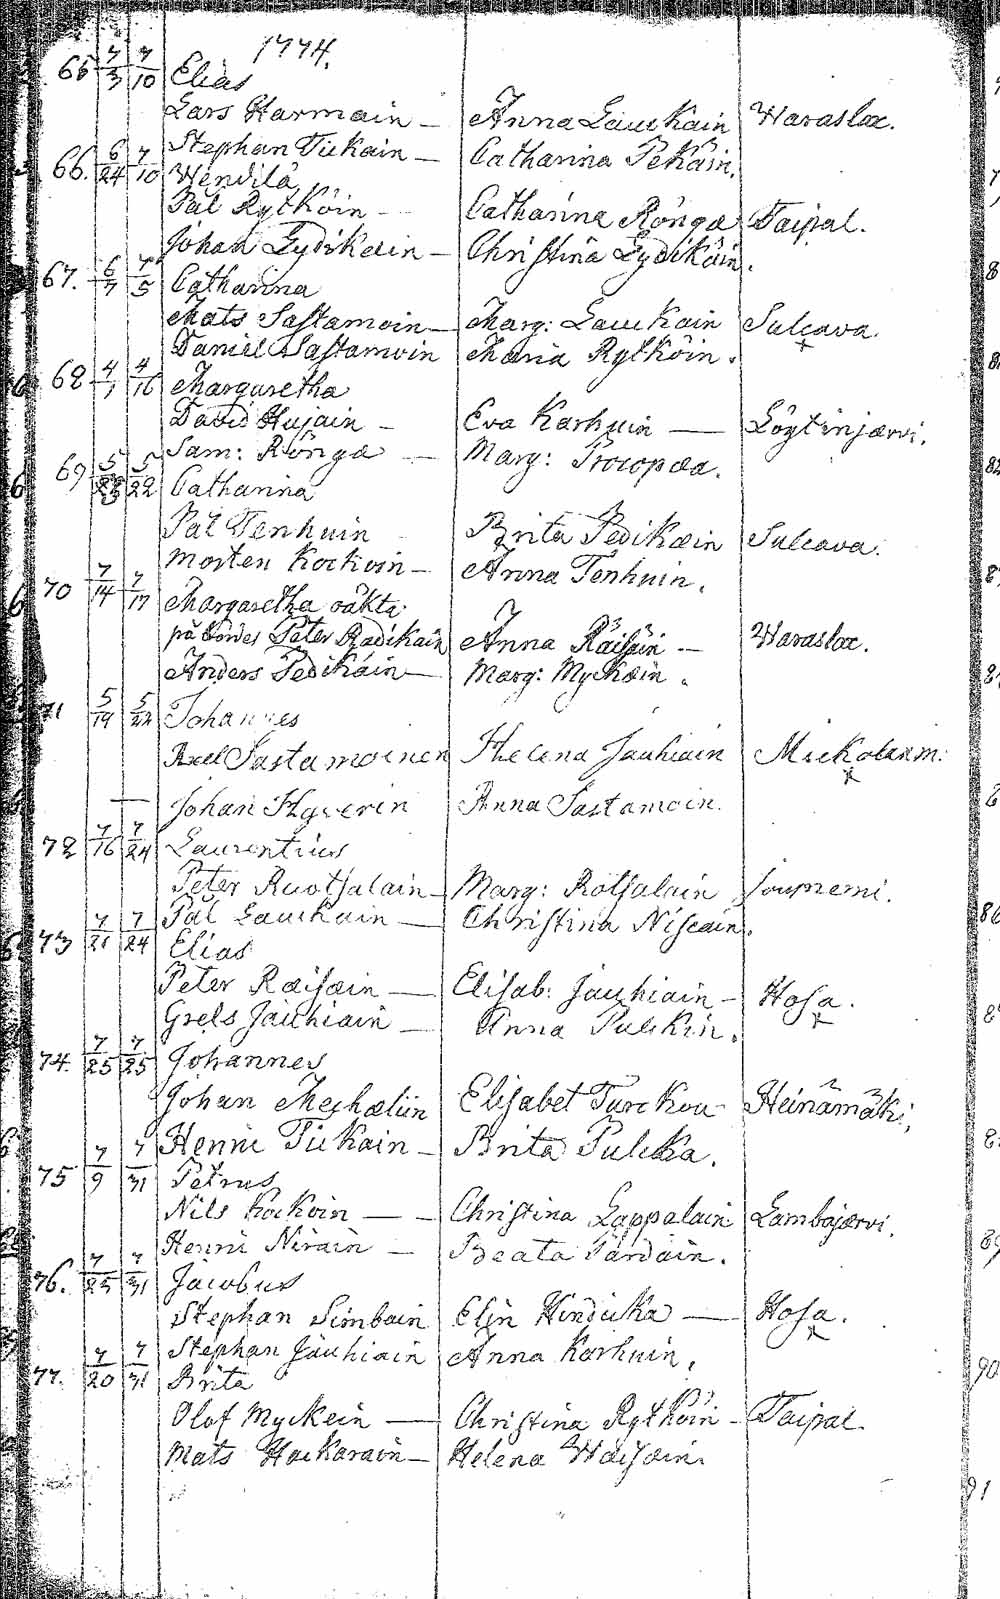 1774.
65 7/3 7/10 Elias
Lars Harmain — Anna Laukain Haraslax.
Stephan Tiikain — Catharina Pekäin.
66. 6/24 7/10 Wendila
Pål Rytköin — Catharina Rönga Taipal.
Johan Lydikäin — Christina Lydikäin.
67. 6/7 7/5 Catharina
Mats Sastamoin — Marg: Laukain Sulcava.
Daniel Sastamoin Maria Rytköin.
68 4/1 4/16 Margaretha
David Hujain — Eva Karhuin — Löytinjærvi.
Sam: Rönga — Marg: Procopæa.
69 5/22 Catharina
Pål Tenhuin Brita Pedikæin Sulcava.
Morten Kockoin — Anna Tenhuin.
70 7/14 7/17 Margaretha oäkta
på Peter Radikain Anna Räisäin — Haraslax.
Anders Pedikäin — Marg: Myckæin.
71 5/19 5/22 Johannes
Axel Sastamoinen Helena Jauhiain Mickolanm:
— Johan Hyverin Anna Sastamoin.
72 7/16 7/24 Laurentius
Peter Ruotsalain — Marg: Rotsalain Joupnemi.
Pål Laukain — Christina Niscain.
73 7/21 7/24 Elias
Peter Ræisæin — Elisab: Jauhiain — Hosa.
Grels Jauhiain — Anna Pulckin.
74. 7/25 7/25 Johannes
Johan Meshæliin Elisabet Turckou Heinämäki.
Henric Tiikain — Brita Pulcka.
75 7/9 7/31 Petrus
Nils Kockoin — Christina Lappalain Lambajærvi.
Henric Nirain — Beata Pardain.
76. 7/25 7/31 Jacobus
Stephan Simbain Elin Hinducka — Hosa.
Stephan Jauhiain Anna Karhuin.
77. 7/20 7/31 Brita
Olof Myckein — Christina Rytköin — Taipal.
Mats Hackarain — Helena Waisæin.